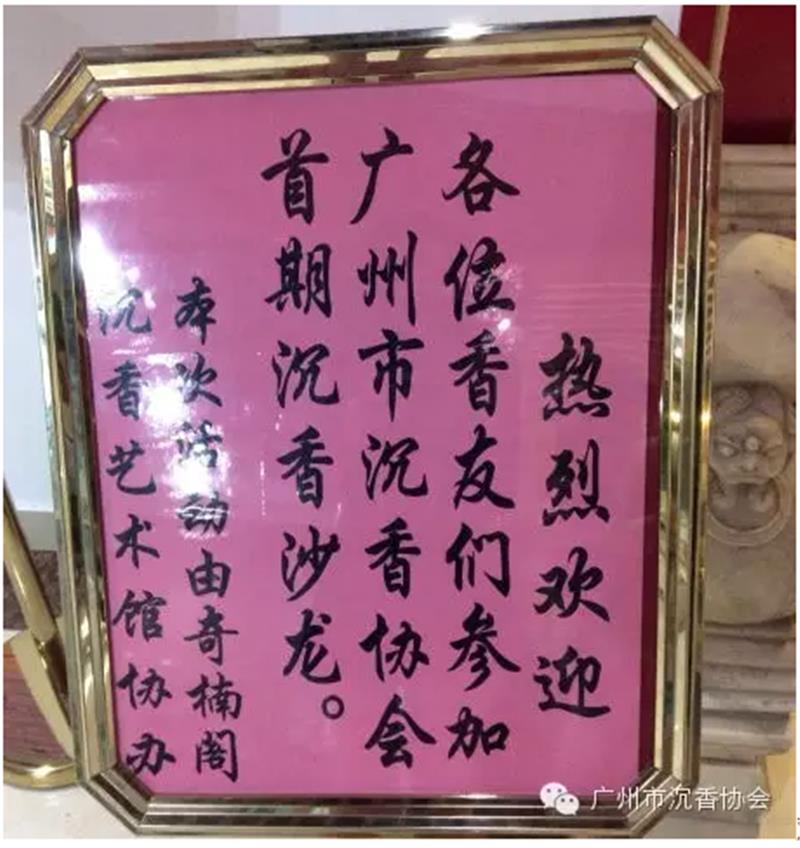 热烈欢迎
各位香友们参加
广州市沉香协会
首期沉香沙龙。
本次活动由奇楠阁
沉香艺术馆协办
广州市沉香协会